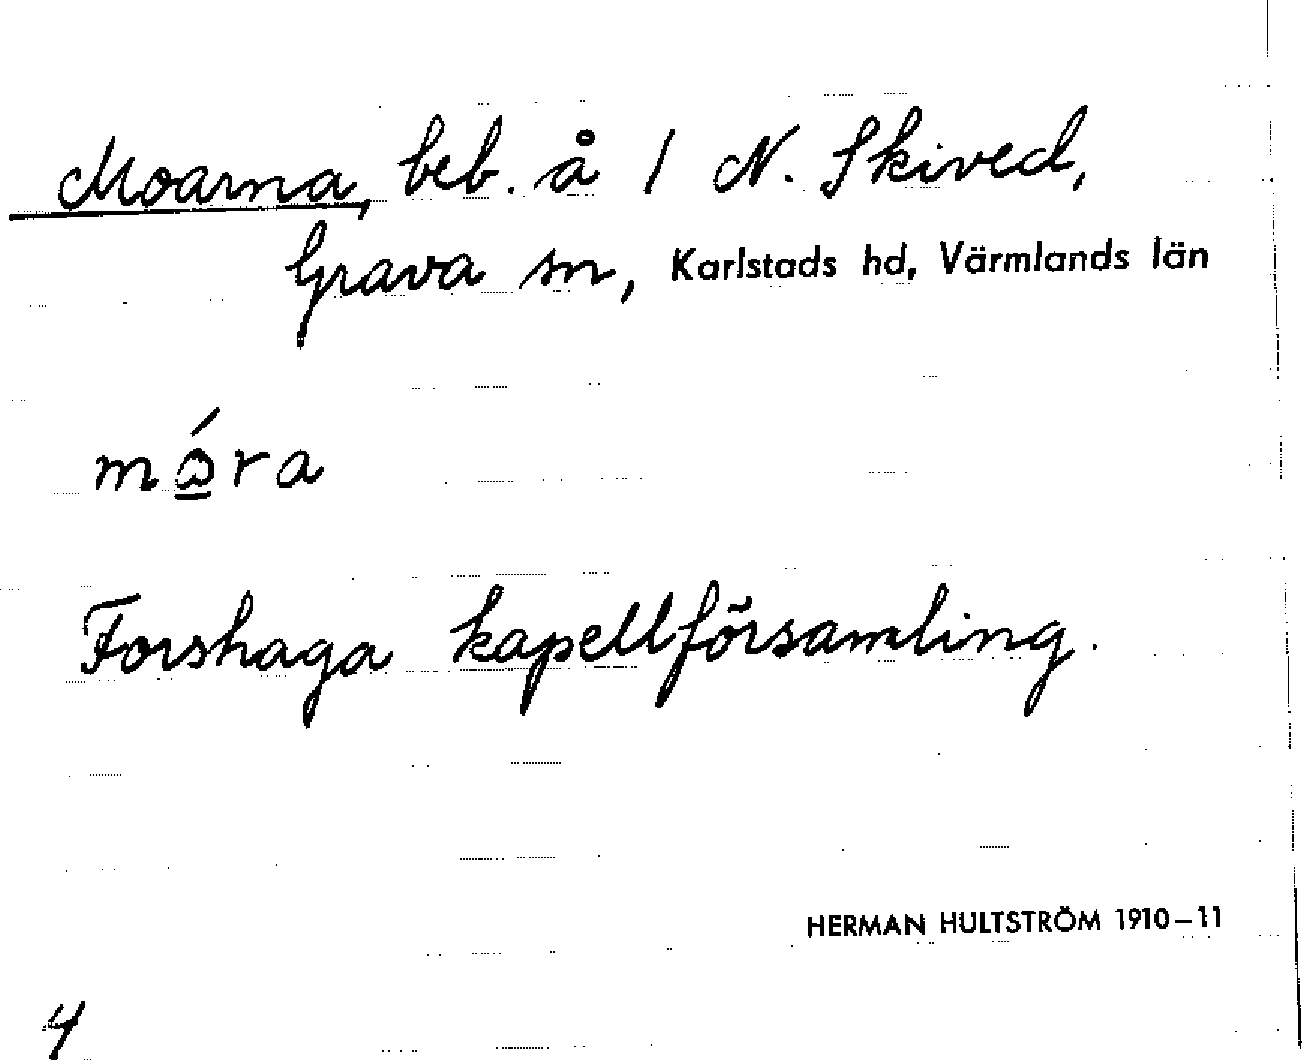 Moarna, beb. å 1 N. Skived,
Grava sn, Karlstads hd, Värmlands län
mɷ̲́ra
Forshaga kapellförsamling.
HERMAN HULTSTRÖM 1910–11
4